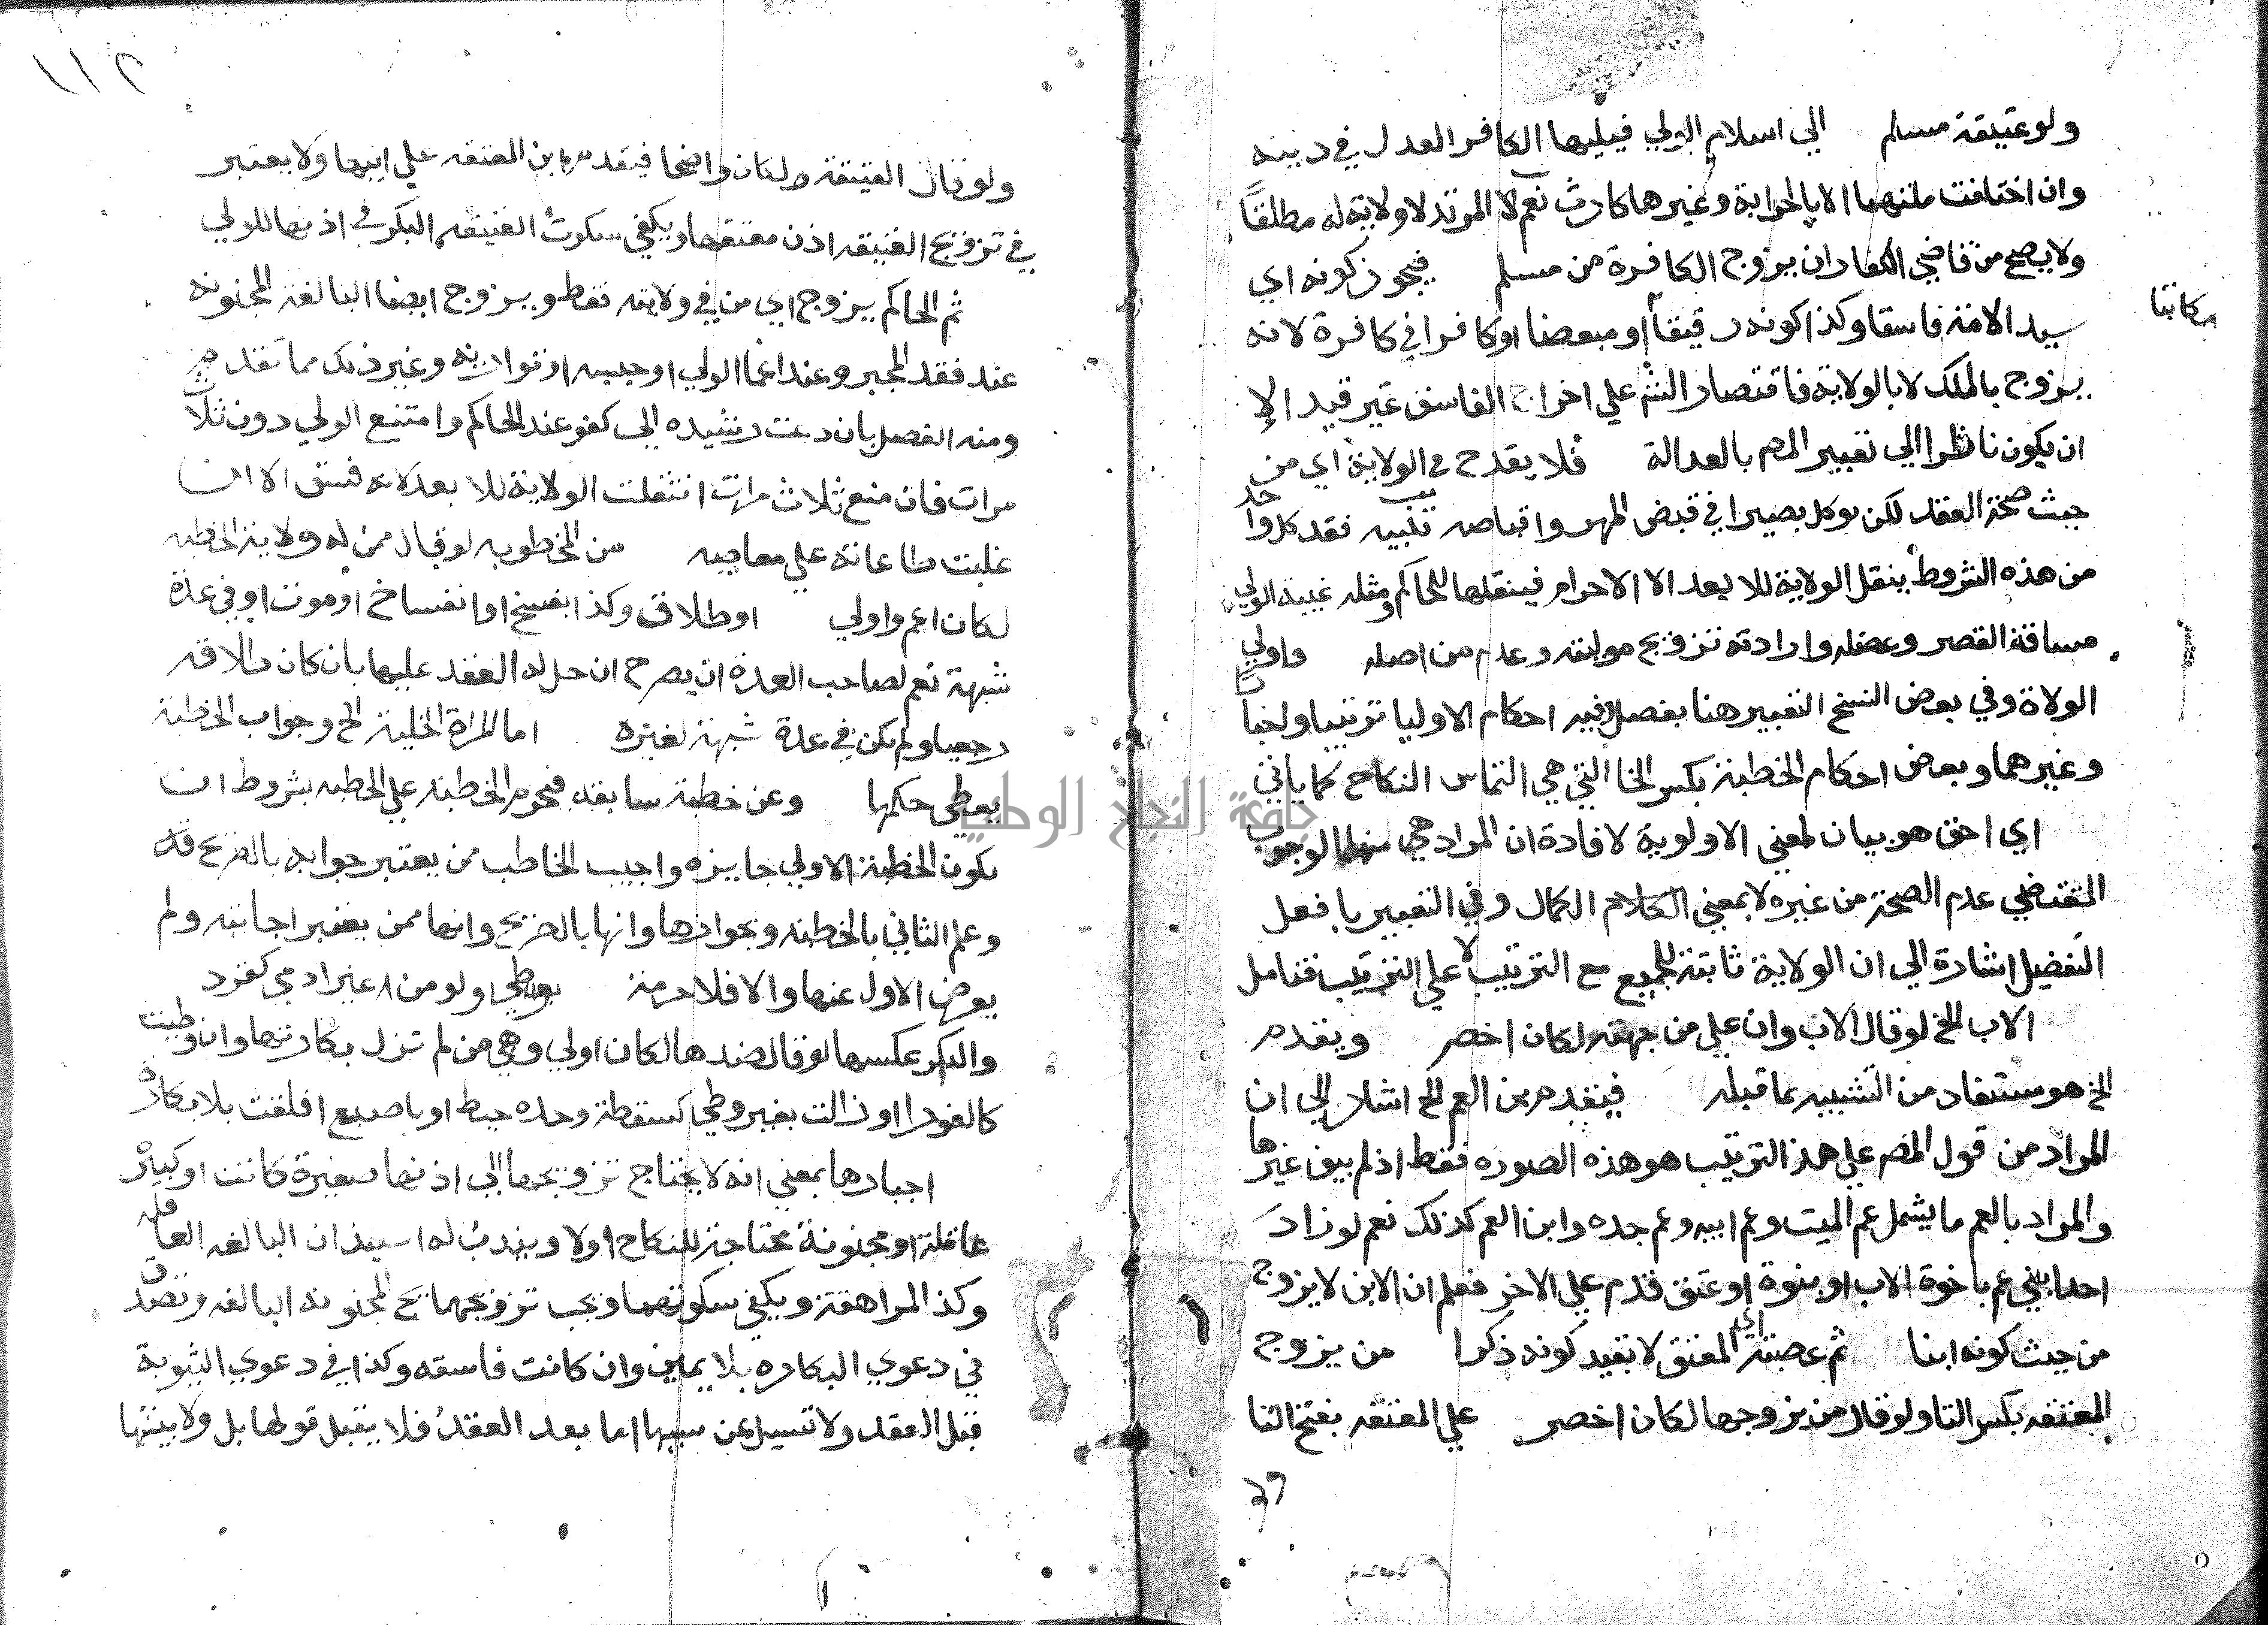 ولو عتيقة مسلم   الي اسلام الولي فيليها الكافر العدل في دينه
وان اختلفت ملتهما الا بالحرابة وغيرها كارث نعم لا المرتد لا ولاية له مطلقا
ولا يصح من قاضي الكفار ان يزوج الكافرة من مسلم   فيجوز كونه اي
سيد الامة فاسقا وكذا كونه رقيقا او مبعضا او كافرا في كافرة لانه
مكاتبا
يزوج بالملك لا بالولاية فاقتصار الش علي اخراج الفاسق غير قيد الا
ان يكون ناظرا الي تعبير المص بالعدالة   فلا يقدح في الولاية اي من
حيث صحة العقد لكن يوكل بصيرا في قبض المهر واقباضه تنبيه فقد كل واحد
من هذه الشروط ينقل الولاية للابعد الا الاحرام فينقلها للحاكم ومثله غيبة الولي
مسافة القصر وعضله وارادته تزويج موليته وعدم من اصله   واولي
الولاة وفي بعض النسخ التعبير هنا بفصل وفيه احكام الاوليا ترتيبا واجبارا
وغيرهما وبعض احكام الخطبة بكسر الخا التي هي التماس النكاح كما ياتي
اي احق هو بيان لمعني الاولوية لافادة ان المراد هي منها الوجوب
المقتضي عدم الصحة من غيره لا بمعني الكلام الكمال وفي التعبير بافعل
التفضيل اشارة الي ان الولاية ثابتة للجميع مع الترتيب لا علي الترتيب فتامل
الاب الخ لو قال الاب وان علي من جهته لكان اخصر   ويقدم
الخ هو مستفاد من التشبيه بما قبله   فيقدم ابن العم الخ اشار الي ان
المراد من قول المص علي هذا الترتيب هو هذه الصوره فقط اذ لم يبق غيرها
والمراد بالعم ما يشمل عم الميت وعم ابيه وعم جده وابن العم كذلك نعم لو زاد
احد ابني عم باخوة الاب او بنوة او عتق قدم علي الاخر فعلم ان الابن لا يزوج
من حيث كونه ابنا   ثم عصبته اي المعتق لا بقيد كونه ذكرا   من يزوج
المعتقه بكسر التا ولو قال من يزوجها لكان اخصر   علي المعتقه بفتح التا
١١٢
ولو قال العتيقة لكان واضحا فيقدم ابن المعتقه علي ابيها ولا يعتبر
في تزويج العتيقه اذن معتقها ويكفي سكوت العتيقه البكر في اذنها للولي
ثم الحاكم يزوج اي من في ولايته فقط ويزوج ايضا البالغة المجنونة
عند فقد المجبر وعند اغما الولي او حبسه او تواريه وغير ذلك مما تقدم
ومنه العضل بان دعت رشيده الي كفو عند الحاكم وامتنع الولي دون ثلاث
مرات فان منع ثلاث مرات انتقلت الولاية للابعد لانه فسق الا ان
غلبت طاعاته علي معاصيه   من المخطوبه لو قال ممن له ولاية الخطبه
لكان اعم واولي   او طلاق وكذا بفسخ او انفساخ او موت او في عدة
شبهة نعم لصاحب العدة ان يصرح ان حل له العقد عليها بان كان طلاقه
رجعيا ولم يكن في عدة شبهة لغيره   اما المراة الخلية الخ وجواب الخطبة
يعطي حكمها   وعن خطبة سابقه فتحرم الخطبة علي الخطبه بشروط ان
يكون الخطبة الاولي جايزه واجيب الخاطب من يعتبر جوابه بالصريح
وعلم الثاني بالخطبه وبجوازها وانها بالصريح وانها ممن يعتبر اجابته ولم
يعرض الاول عنها والا فلا حرمة   بوطئ ولو من غير ادمي كقرد
والبكر عكسها لو قال ضدها لكان اولي وهي من لم تزل بكارتها وان وطيت
كالغورا او زالت بغير وطئ كسقطة وحده حيض او باصبع او خلقت بلا بكارة
اجبارها بمعني انه لا يحتاج تزويجها الي اذنها صغيرة كانت او كبيرة
عاقلة او مجنونة محتاجة للنكاح اولا ويندب له استيذان البالغه العاقله
وكذا المراهقة ويكفي سكوتهما ويجب تزويجها المجنونه البالغه وتصدق
في دعوي البكاره بلا يمين وان كانت فاسقه وكذا في دعوي الثيوبة
قبل العقد ولا تسيل عن سببها اما بعد العقد فلا يقبل قولها بل ولا بينتها
جامعة النجاح الوطنية